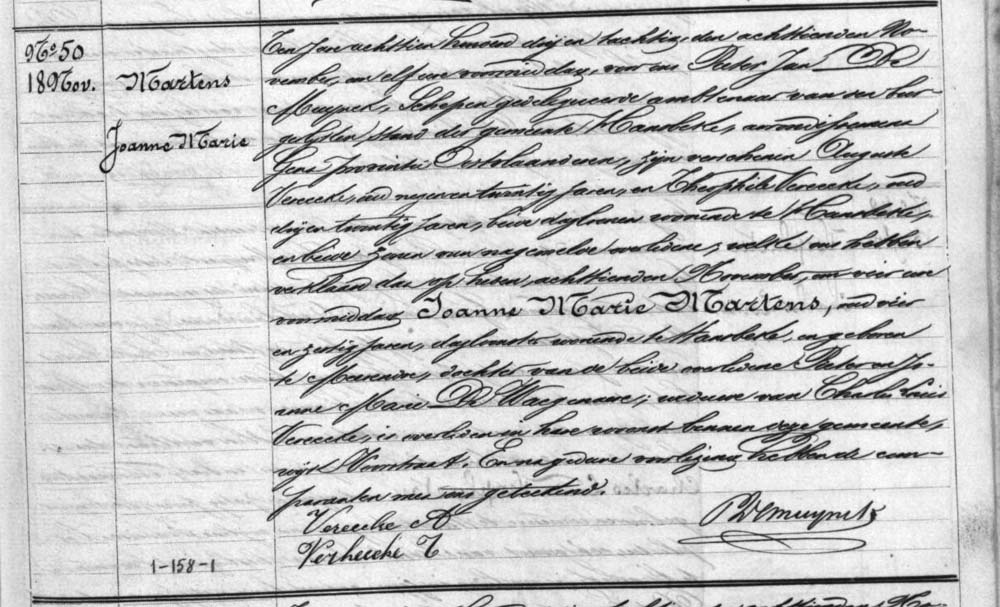 No 50
18 Nov.
Martens
Joanne Marie
Ten Jare achttien honderd drij en tachtig den achttienden No-
vember, om elf ure voormiddag, voor ons Pieter Jan De
Muynck, Schepen gedelegueerde ambtenaar van den bur-
gelijken stand der gemeente Hansbeke, arrondissement
Gent provintie Oostvlaanderen, zijn verschenen Auguste
Vereecke, oud negen en twintig Jaren, en Theophile Vereecke, oud
drij en twintig Jaren, beide dagloonen woonende te Hansbeke,
en beide zonen van nagemelde overledene, welke ons hebben
verklaard dat op heden, achttienden November, om vier ure
voormiddag Joanne Marie Martens, oud vier
en zestig Jaren, dagloonster woonende te Hansbeke, en geboren
te Meerendre, dochter van de beide overledene Pieter en Jo-
anne Marie De Waegenaere; weduwe van Charles Louis
Vereecke, is overleden in hare woonst binnen deze gemeente,
wijk Voorstraat. En na gedane voorlezing hebben de com-
paranten met ons geteekend.
Vereecke A
Verheecke T
PDemuynck
1-158-1